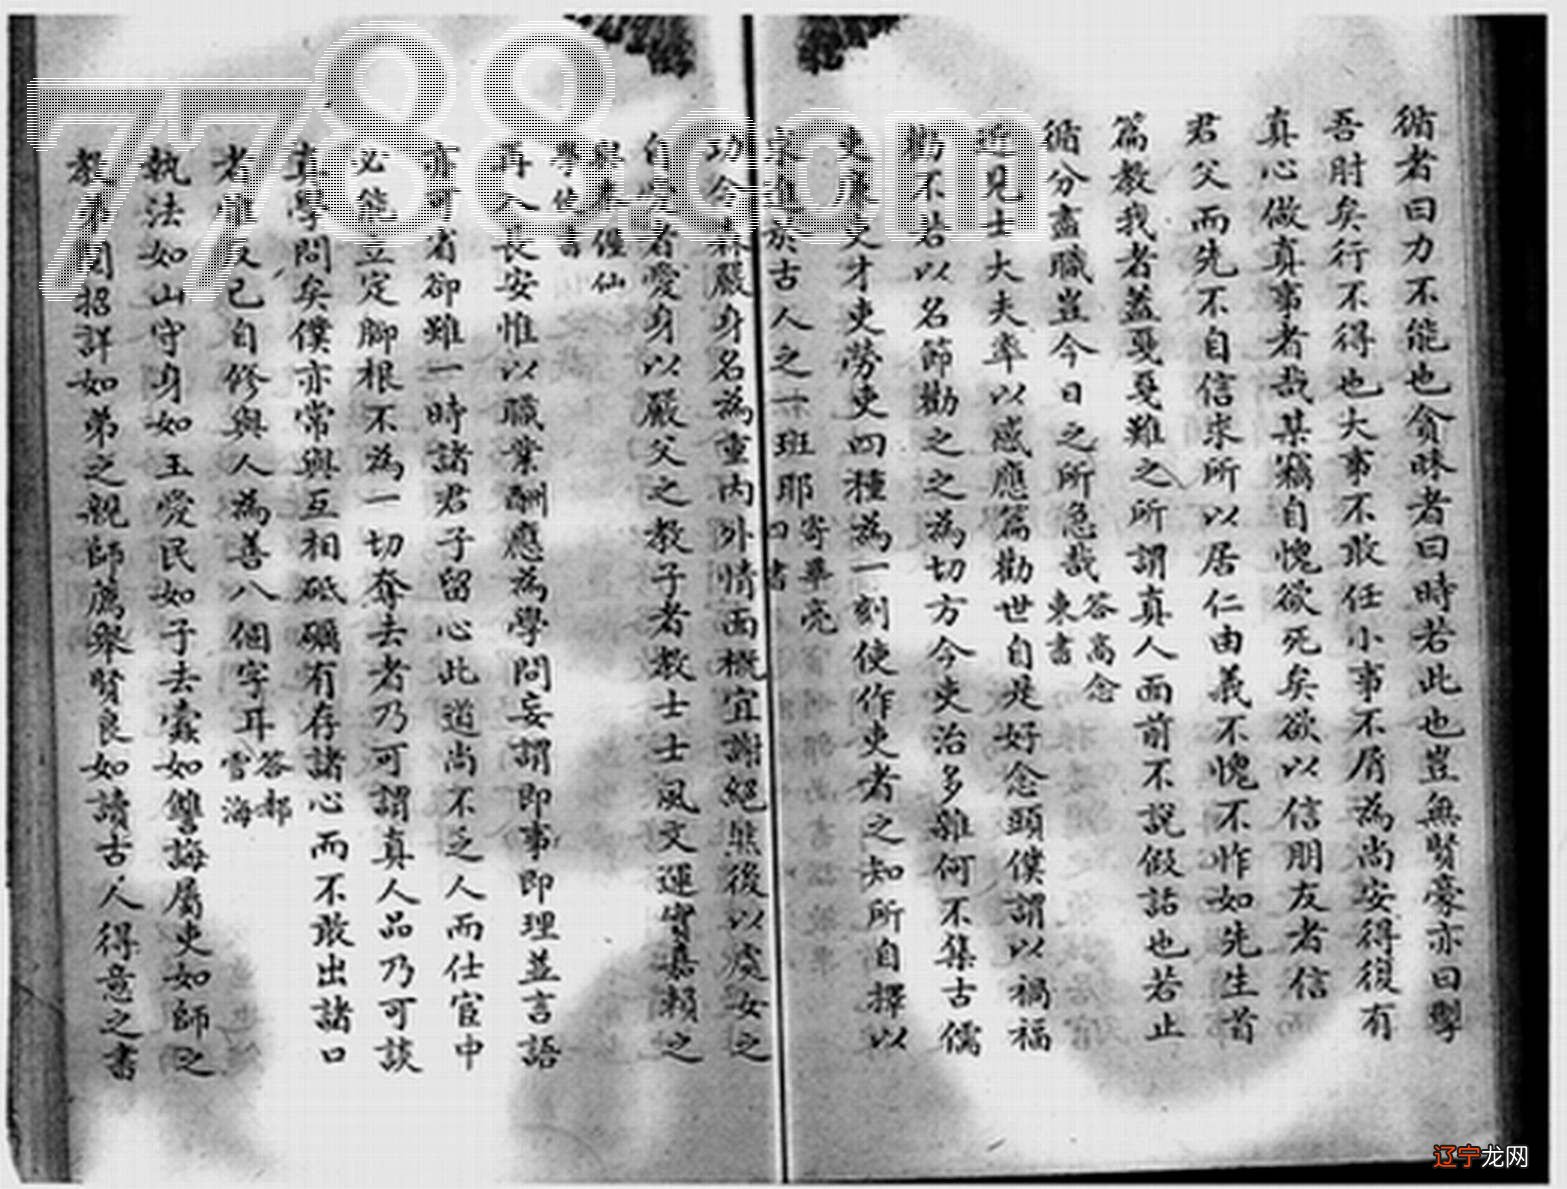 循者曰力不能也貪昧者曰時若此也豈無賢豪亦曰掣
吾肘矣行不得也大事不敢任小事不屑為尚安得復有
真心做真事者哉某竊自愧欲死矣欲以信朋友者信
君父而先不自信求所以居仁由義不愧不怍如先生首
篇教我者蓋戛戛難之所謂真人面前不說假話也若止
循分盡職豈今日之所急哉
答高念
東書
近見士大夫率以感應篇勸世自是好念頭僕謂以禍福
勸不若以名節勸之之為切方今吏治多雜何不集古儒
吏廉吏才吏勞吏四種為一刻使作吏者之知所自擇以
求進於古人之一班耶
寄畢亮
四書
功令森嚴身名為重內外情面概宜謝絕熊後以處女之
自愛者愛身以嚴父之教子者教士士風文運實嘉賴之
僊仙
學使書
再入長安惟以職業酬應為學問妄謂即事即理並言語
亦可省卻雖一時諸君子留心此道尚不乏人而仕宦中
必能立定腳根不為一切奪去者乃可謂真人品乃可談
真學問矣僕亦常與互相砥礪有存諸心而不敢出諸口
者惟反己自修與人為善八個字耳
答郝
雪海
執法如山守身如玉愛民如子去蠹如讐誨屬吏如師之
教弟間招詳如弟之親師薦舉賢良如讀古人得意之書
7788.com
辽宁龙网